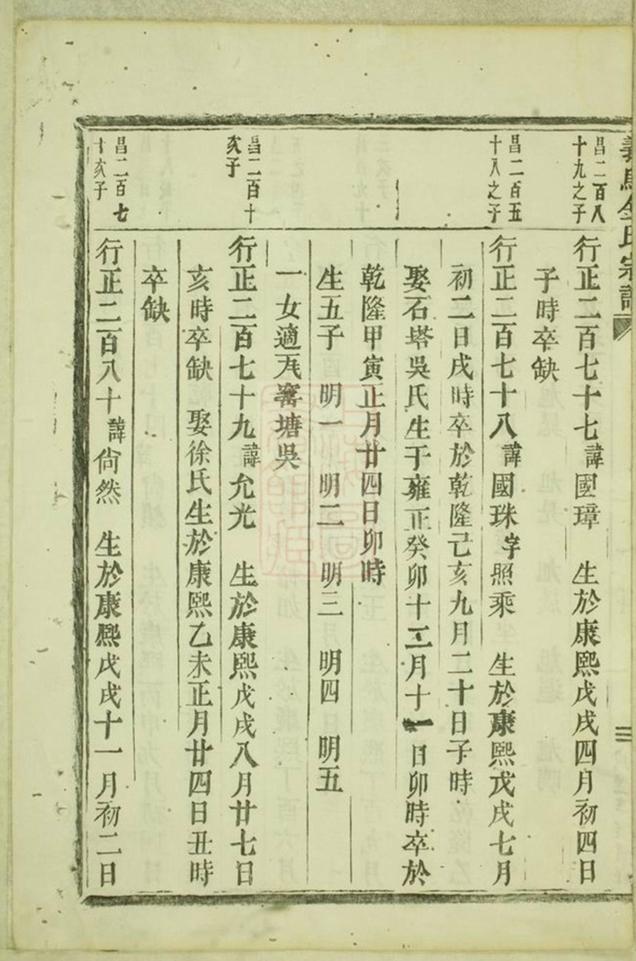 義烏金氏宗譜
昌二百八
十九之子
行正二百七十七諱國璋 生於康熙戊戌四月初四日
子時卒缺
昌二百五
十八之子
行正二百七十八諱國珠字照乘 生於康熙戊戌七月
初二日戌時卒於乾隆己亥九月二十日子時
娶石塔吳氏生于雍正癸卯十二月十一日卯時卒於
乾隆甲寅正月廿四日卯時
生五子 明一 明二 明三 明四 明五
一女適瓦窰塘吳
昌二百十
亥子
行正二百七十九諱允光 生於康熙戊戌八月廿七日
亥時卒缺 娶徐氏生於康熙乙未正月廿四日丑時
卒缺
昌二百七
十亥子
行正二百八十諱尙然 生於康熙戊戌十一月初二日